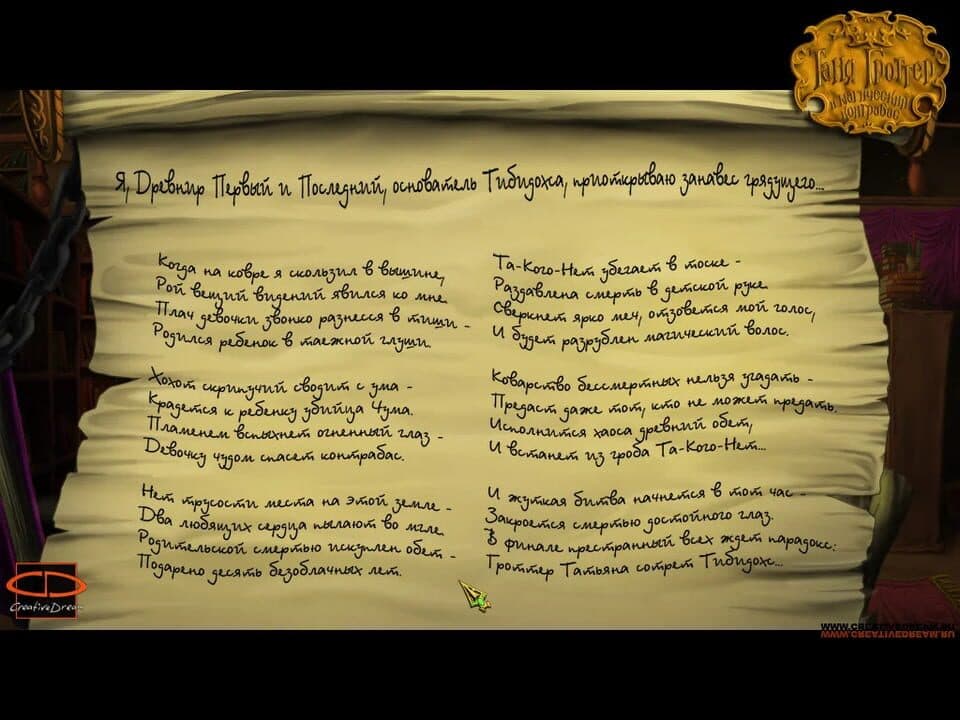 Таня Гроттер
и магический
контрабас
Я, Древнир Первый и Последний, основатель Тибидохса, приоткрываю занавес грядущего...
Когда на ковре я скользил в вышине,
Рой вещий видений явился ко мне.
Плач девочки звонко разнесся в тиши -
Родился ребенок в таежной глуши.
Хохот скрипучий сводит с ума -
Крадется к ребенку убийца Чума.
Пламенем вспыхнет огненный глаз -
Девочку чудом спасет контрабас.
Нет трусости места на этой земле -
Два любящих сердца пылают во мгле.
Родительской смертью искуплен обет -
Подарено десять безоблачных лет.
Та-Кого-Нет убегает в тоске -
Раздавлена смерть в детской руке.
Сверкнет ярко меч, отзовется мой голос,
И будет разрублен магический волос.
Коварство бессмертных нельзя угадать -
Предаст даже тот, кто не может предать.
Исполнится хаоса древний обет,
И встанет из гроба Та-Кого-Нет...
И жуткая битва начнется в тот час -
Закроется смертью достойного глаз.
В финале престранный всех ждет парадокс:
Гроттер Татьяна сотрет Тибидохс...
CreativeDream
WWW.CREATIVEDREAM.RU